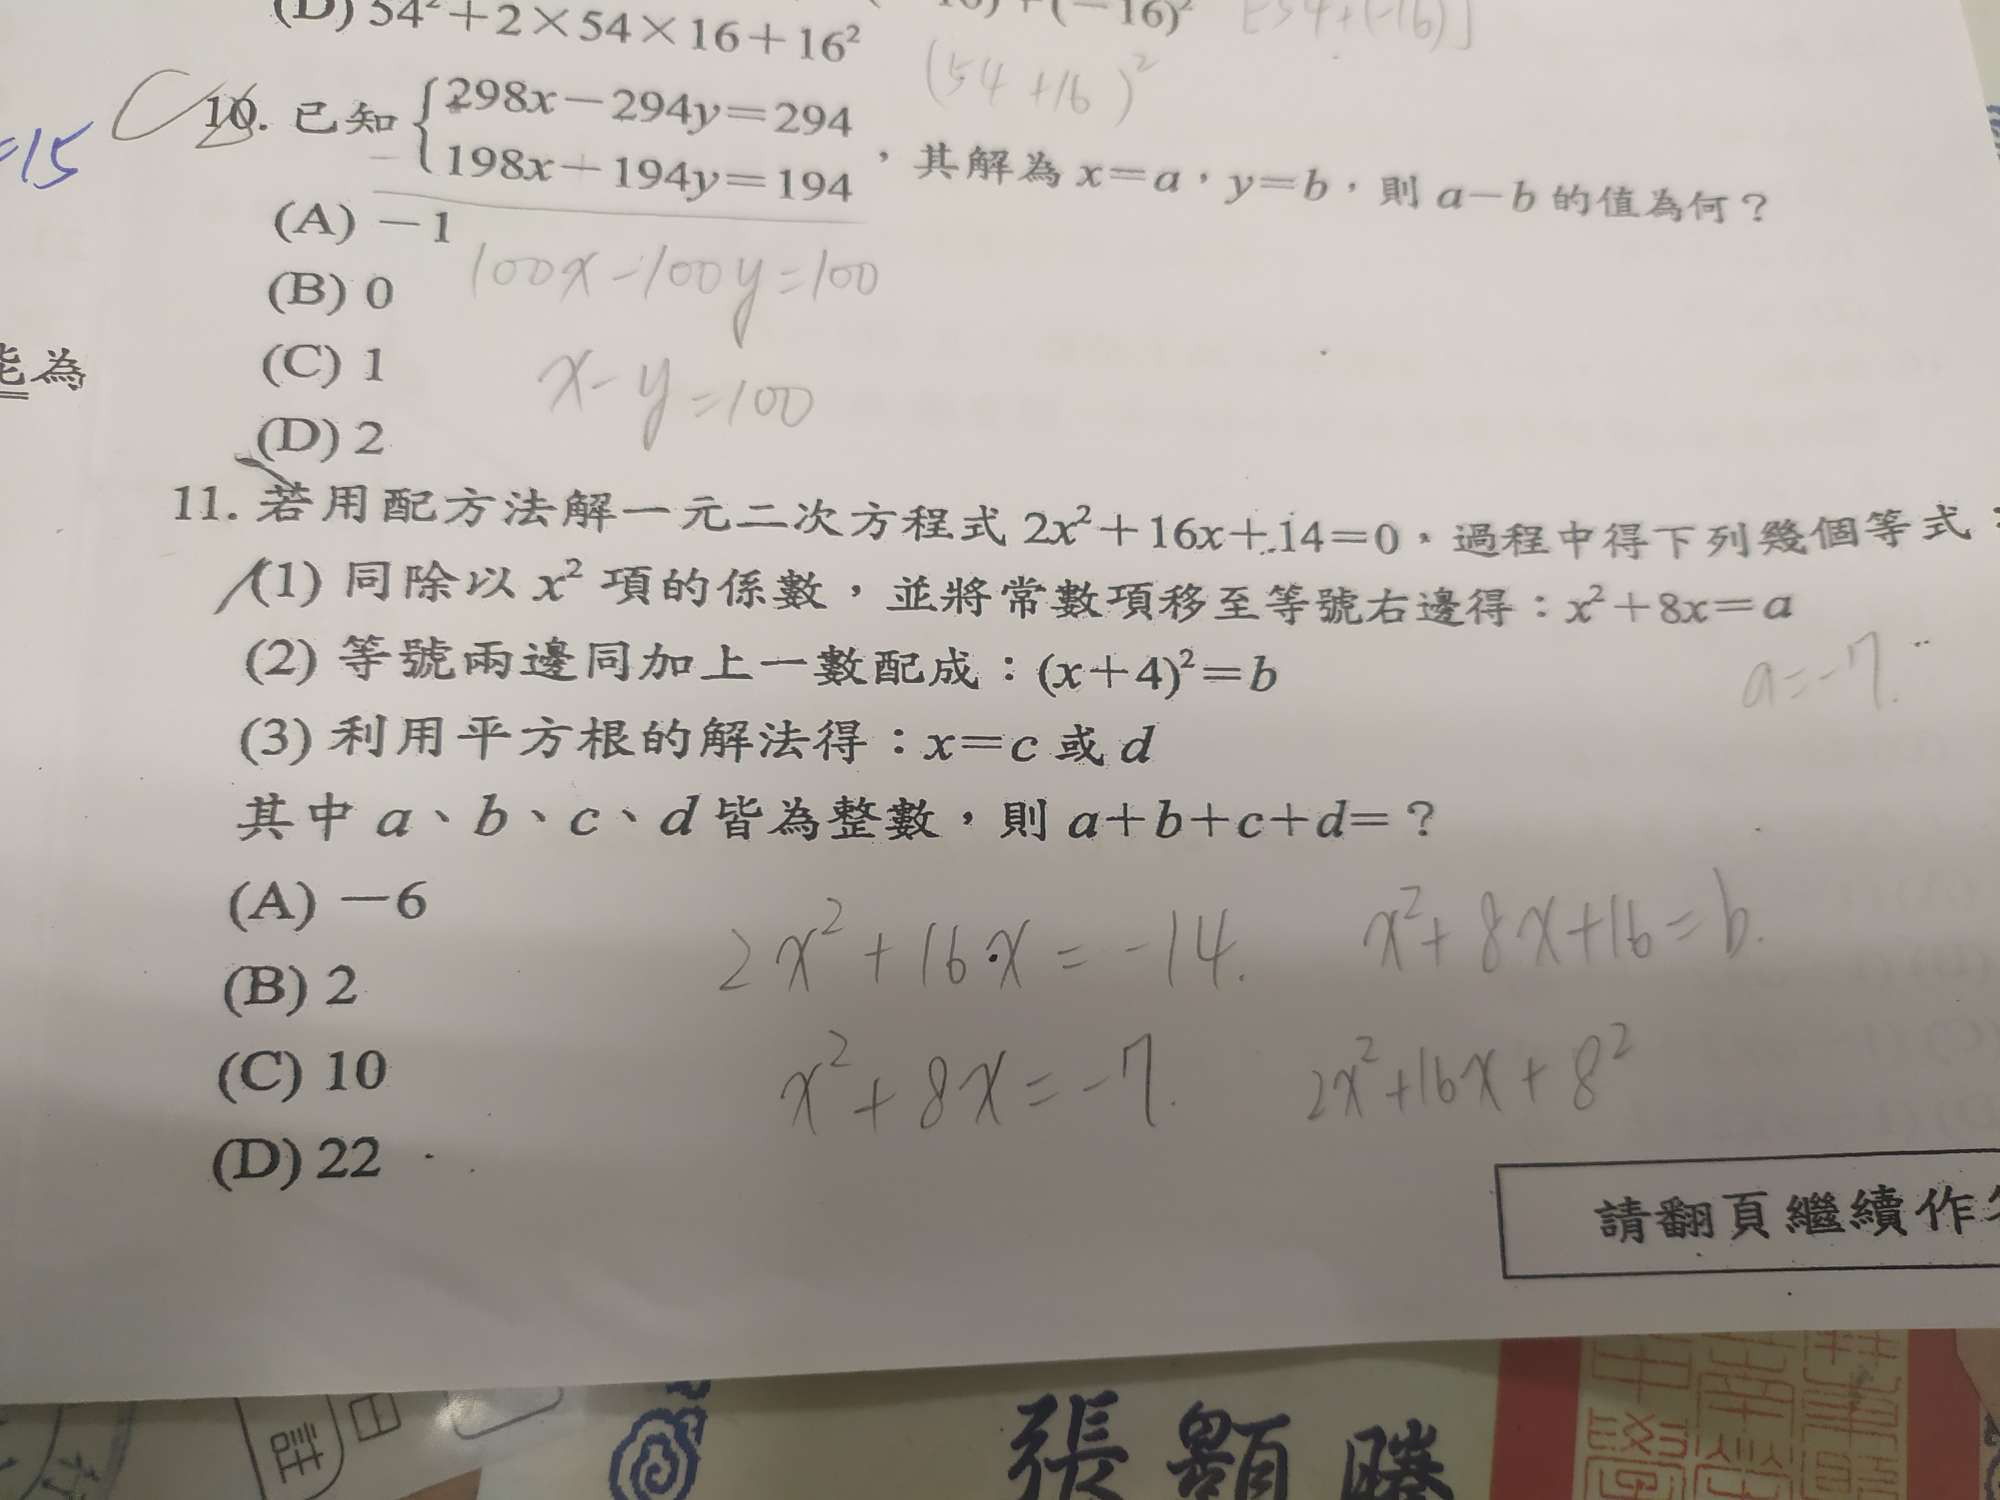 (D) 54²+2×54×16+16²
16)+(−16)²
[54+(-16)]
(54+16)²
=15
10. 已知 {298x−294y=294
198x−194y=194 ，其解為 x=a，y=b，則 a−b 的值為何？
(A) −1
100x-100y=100
(B) 0
(C) 1
x-y=100
(D) 2
為
11. 若用配方法解一元二次方程式 2x²+16x+14=0，過程中得下列幾個等式：
(1) 同除以 x² 項的係數，並將常數項移至等號右邊得：x²+8x=a
a=-7.
(2) 等號兩邊同加上一數配成：(x+4)²=b
(3) 利用平方根的解法得：x=c 或 d
其中 a、b、c、d 皆為整數，則 a+b+c+d=？
(A) −6
2x²+16x=-14.
x²+8x+16=b.
(B) 2
(C) 10
x²+8x=-7.
2x²+16x+8²
(D) 22
請翻頁繼續作
張顥騰